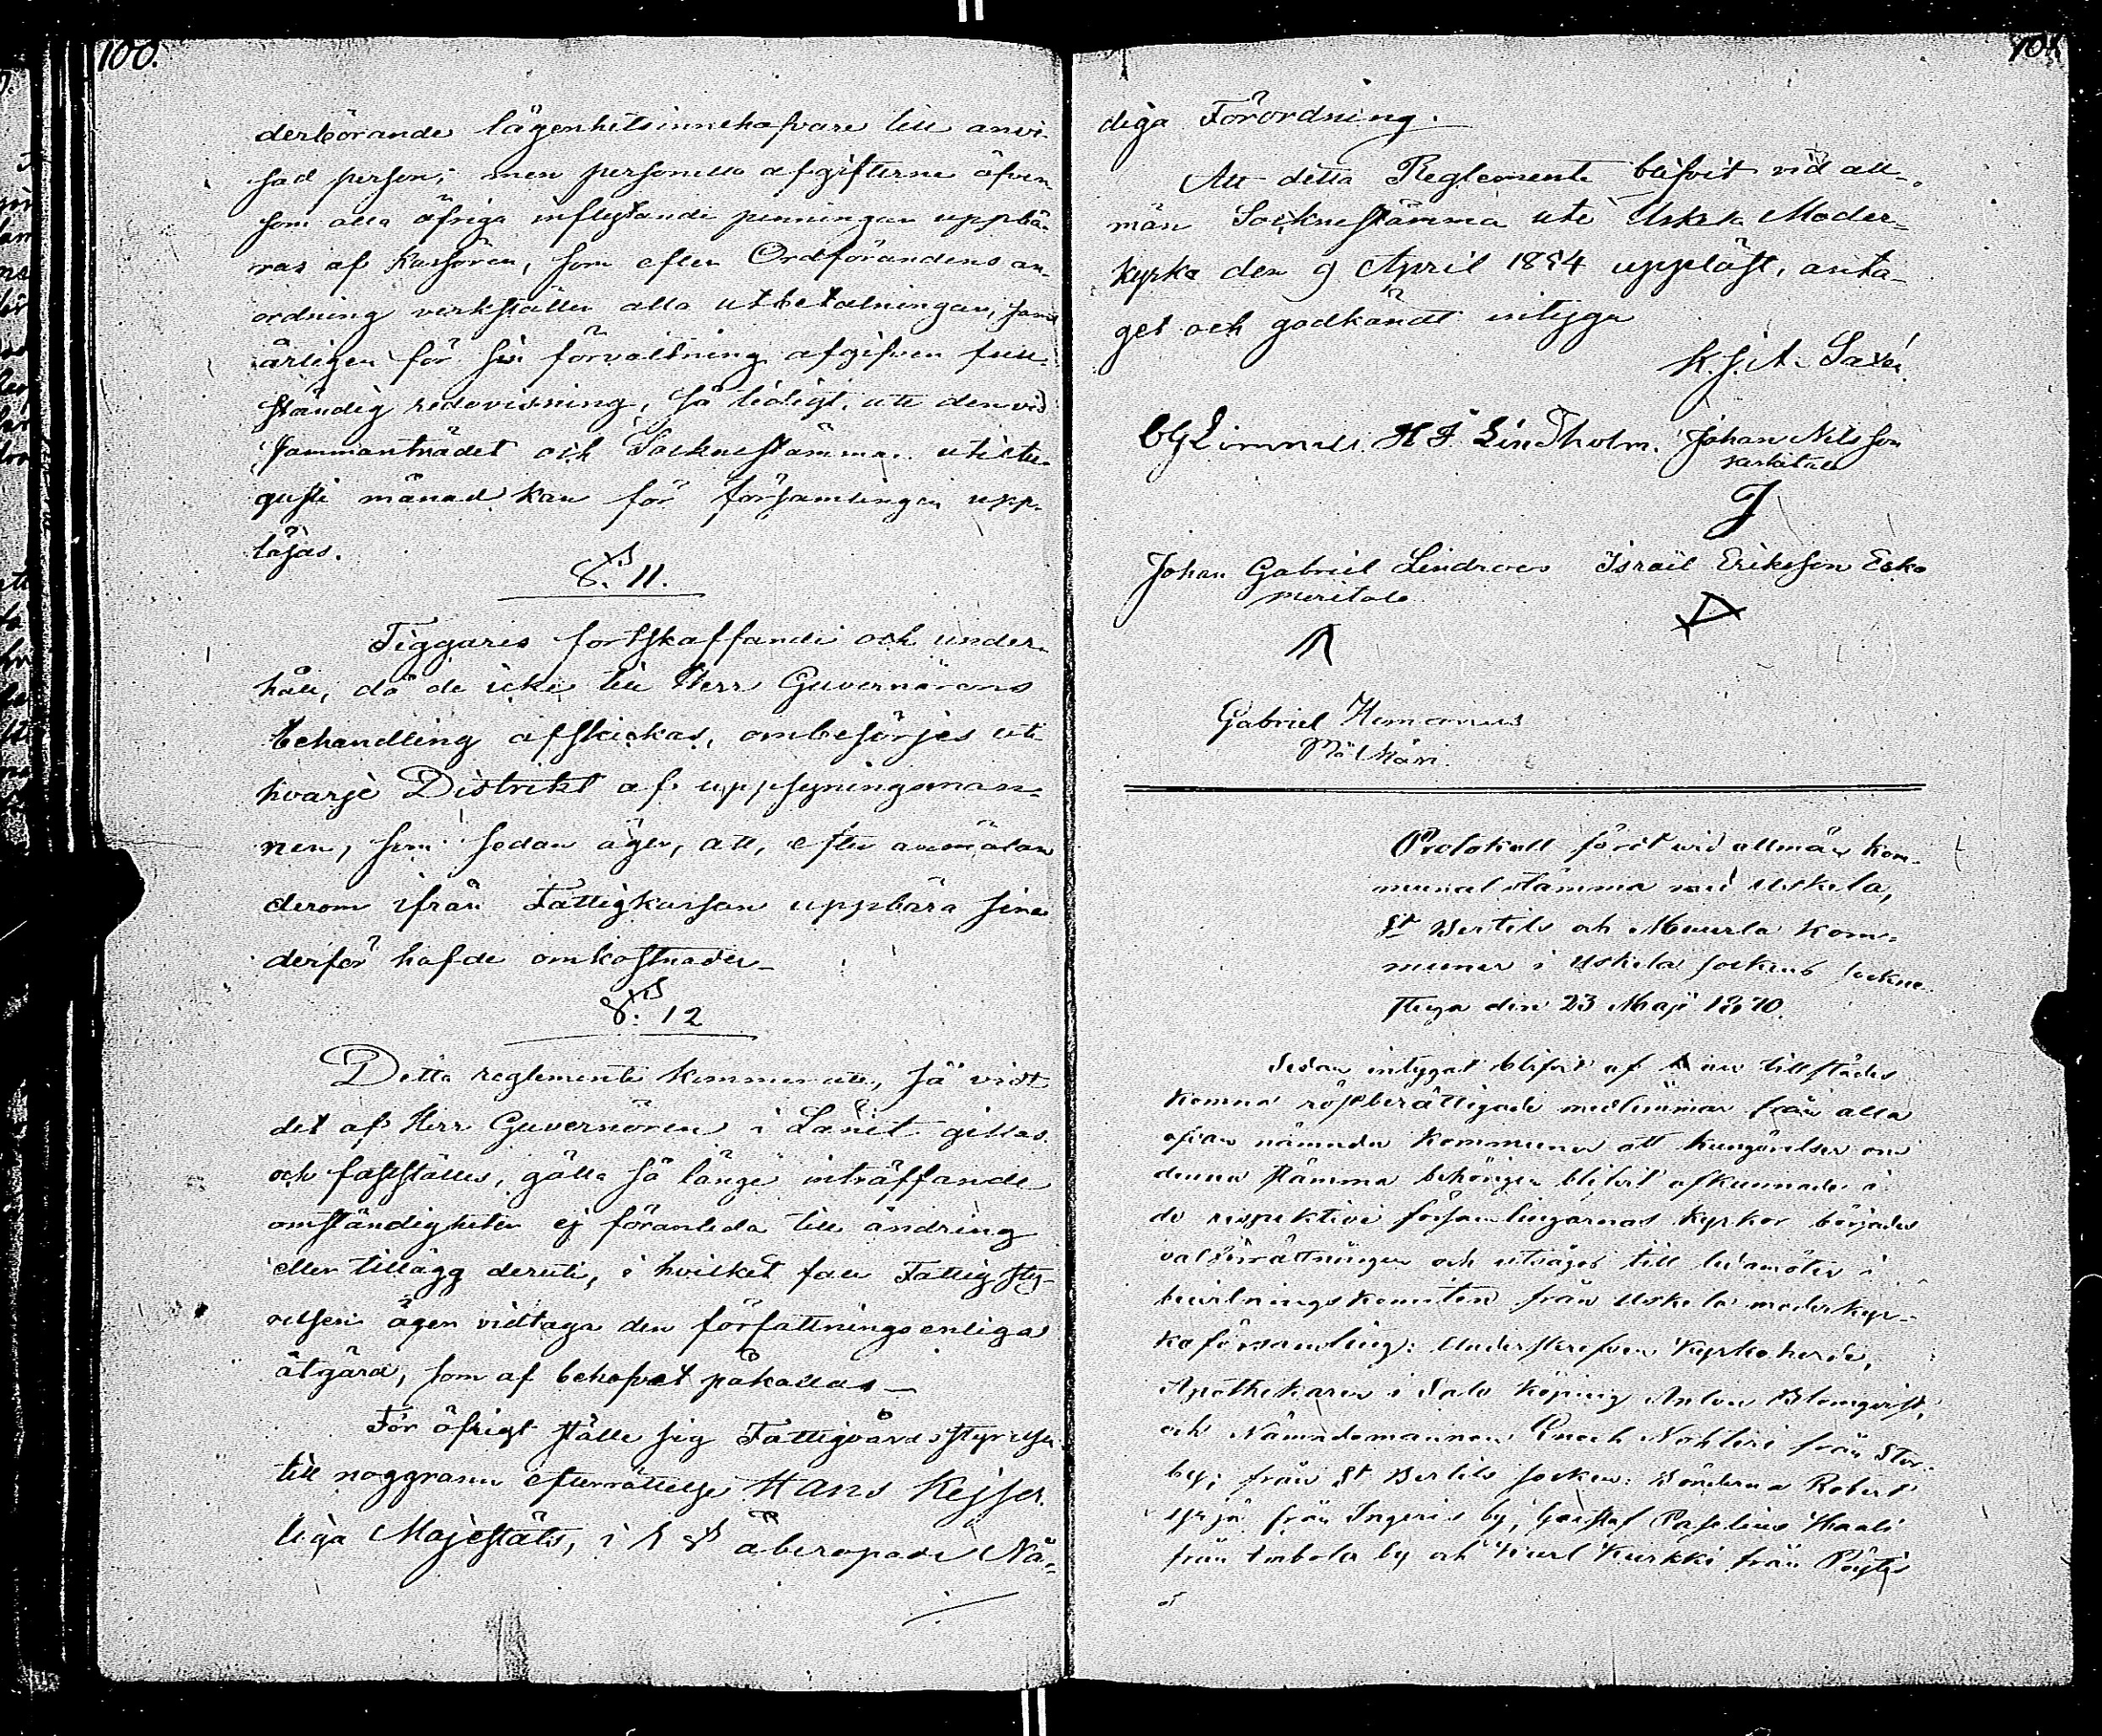 100.
derbörande lägenhetsinnehafvare till anvi-
sad person; men personella afgifterne äfven-
som alla öfriga inflytande penningar uppbä-
ras af Kassören, som efter Ordförandens an-
ordning verkställer alla utbetalningar, samt
årligen för sin förvaltning afgifven full-
ständig redovisning, så tidigt, att den vid
sammanträdet och Socknestämman uti Au-
gusti månad kan för församlingen upp-
läsas.
§. 11.
Tiggares fortskaffande och under-
håll, då de icke till Herr Guvernörens
behandling afskickas, ombesörjes uti
hvarje Distrikt af uppsyningsman-
nen, som sedan äger, att, efter anmälan
derom ifrån Fattigkassan uppbära sina
derför hafde omkostnader.
§. 12
Detta reglemente kommer att, så vidt
det af Herr Guvernören i Länet gillas
och fastställes, gälla så länge inträffande
omständigheter ej föranleda till ändring
eller tillägg deruti, i hvilket fall Fattigsty-
relsen äger vidtaga den författningsenliga
åtgärd, som af behofvet påkallas—
För öfrigt ställe sig Fattigvårdsstyrelsen
till noggrann efterrättelse Hans Kejser-
liga Majestäts, i 1 § åberopade Nå-
101
diga Förordning.
Att detta Reglemente blifvit vid all-
män Socknestämma uti Uskela Moder-
kyrka den 9 April 1854 uppläst, anta-
get och godkändt intyga
K. J. A. Saxén.
H F Lindholm. Johan Nilsson
Johan Gabriel Lindroos Israel Eriksson Esko
meritalo
Gabriel
Protokoll fördt vid allmän kom-
munal stämma med Uskela,
St Bertils och Muurla kom-
muner i Uskela sockens sockne-
stuga den 23 Maji 1870.
Sedan intygat blifvit af de nu tillstädes
komna röstberättigade medlemmar från alla
ofvan nämnda kommuner att kungörelser om
denna stämma behörigen blifvit afkunnade i
de respektive församlingarnas kyrkor börjades
valförrättningen och utsågos till ledamöter i
bevillningskomiten från Uskela moderkyr-
koförsamling: Underskrefven Kyrkoherde,
Apothekaren i Salo köping Anton Blomqvist,
och Nämndemannen Enoch från Stor-
by; från St Bertils socken: Bönderna Robert
Yrjä från Ingeris by, Gustaf
från by och Karl Kurkki från Pöytiö